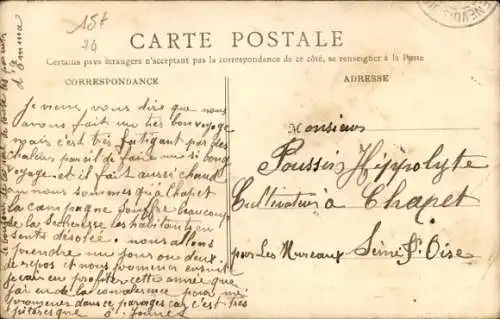 157
20
CARTE POSTALE
Certains pays étrangers n'acceptant pas la correspondance de ce côté, se renseigner à la Poste
CORRESPONDANCE
ADRESSE
Je viens vous dire que nous
avons fait un très bon voyage
mais c'est très fatigant par des
chaleurs pareil de faire un si long
voyage. et il fait aussi chaud
où nous sommes qu'à Chapet
la campagne souffre beaucoup
de la sécheresse les habitants en
sont désolée. nous allons
prendre un jour ou deux
de repos et nous promener ensuite
je vais en profiter cette année que
j'ai de la convalescence pour me
promener dans ce parages car c'est très
pitoresque
Monsieur
Poussin Hippolyte
Cultivateur à Chapet
par Les Mureaux Seine & Oise